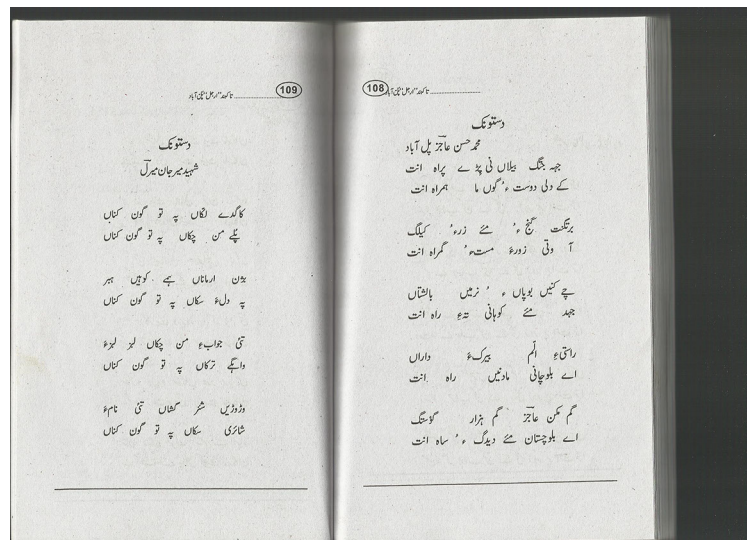 108
دستونک
محمد حسن عاجز پل آباد
جہہ جنگ بیلاں نی پڑ ے پراہ انت
کے دلی دوست ءُ گوں ما ہمراہ انت
برتکت گنج ءُ مئے زرءُ کیلگ
آ وتی زورءَ مستءُ گمراہ انت
چے کنیں بوپاں ءُ نرمیں بالشتاں
جہد مئے کوہانی تہءِ راہ انت
راستیءِ الّم بیرکءَ داراں
اے بلوچانی مادنیں راہ انت
گم مکن عاجز گم ہزار گوستگ
اے بلوچستان مئے دیدگ ءُ ساہ انت
109
دستونک
شہید میر جان میرل
کاگدے لکاں پہ تو گون کناں
پلے من چکاں پہ تو گون کناں
بژن ارماناں ہے کوہیں ہبر
پہ دلءَ سکاں پہ تو گون کناں
تئی جوابءِ من چکاں لبز لبزءَ
واہگے ترکاں پہ تو گون کناں
وڑوڑیں شئر گشاں تئی نامءَ
شائری سکاں پہ تو گون کناں